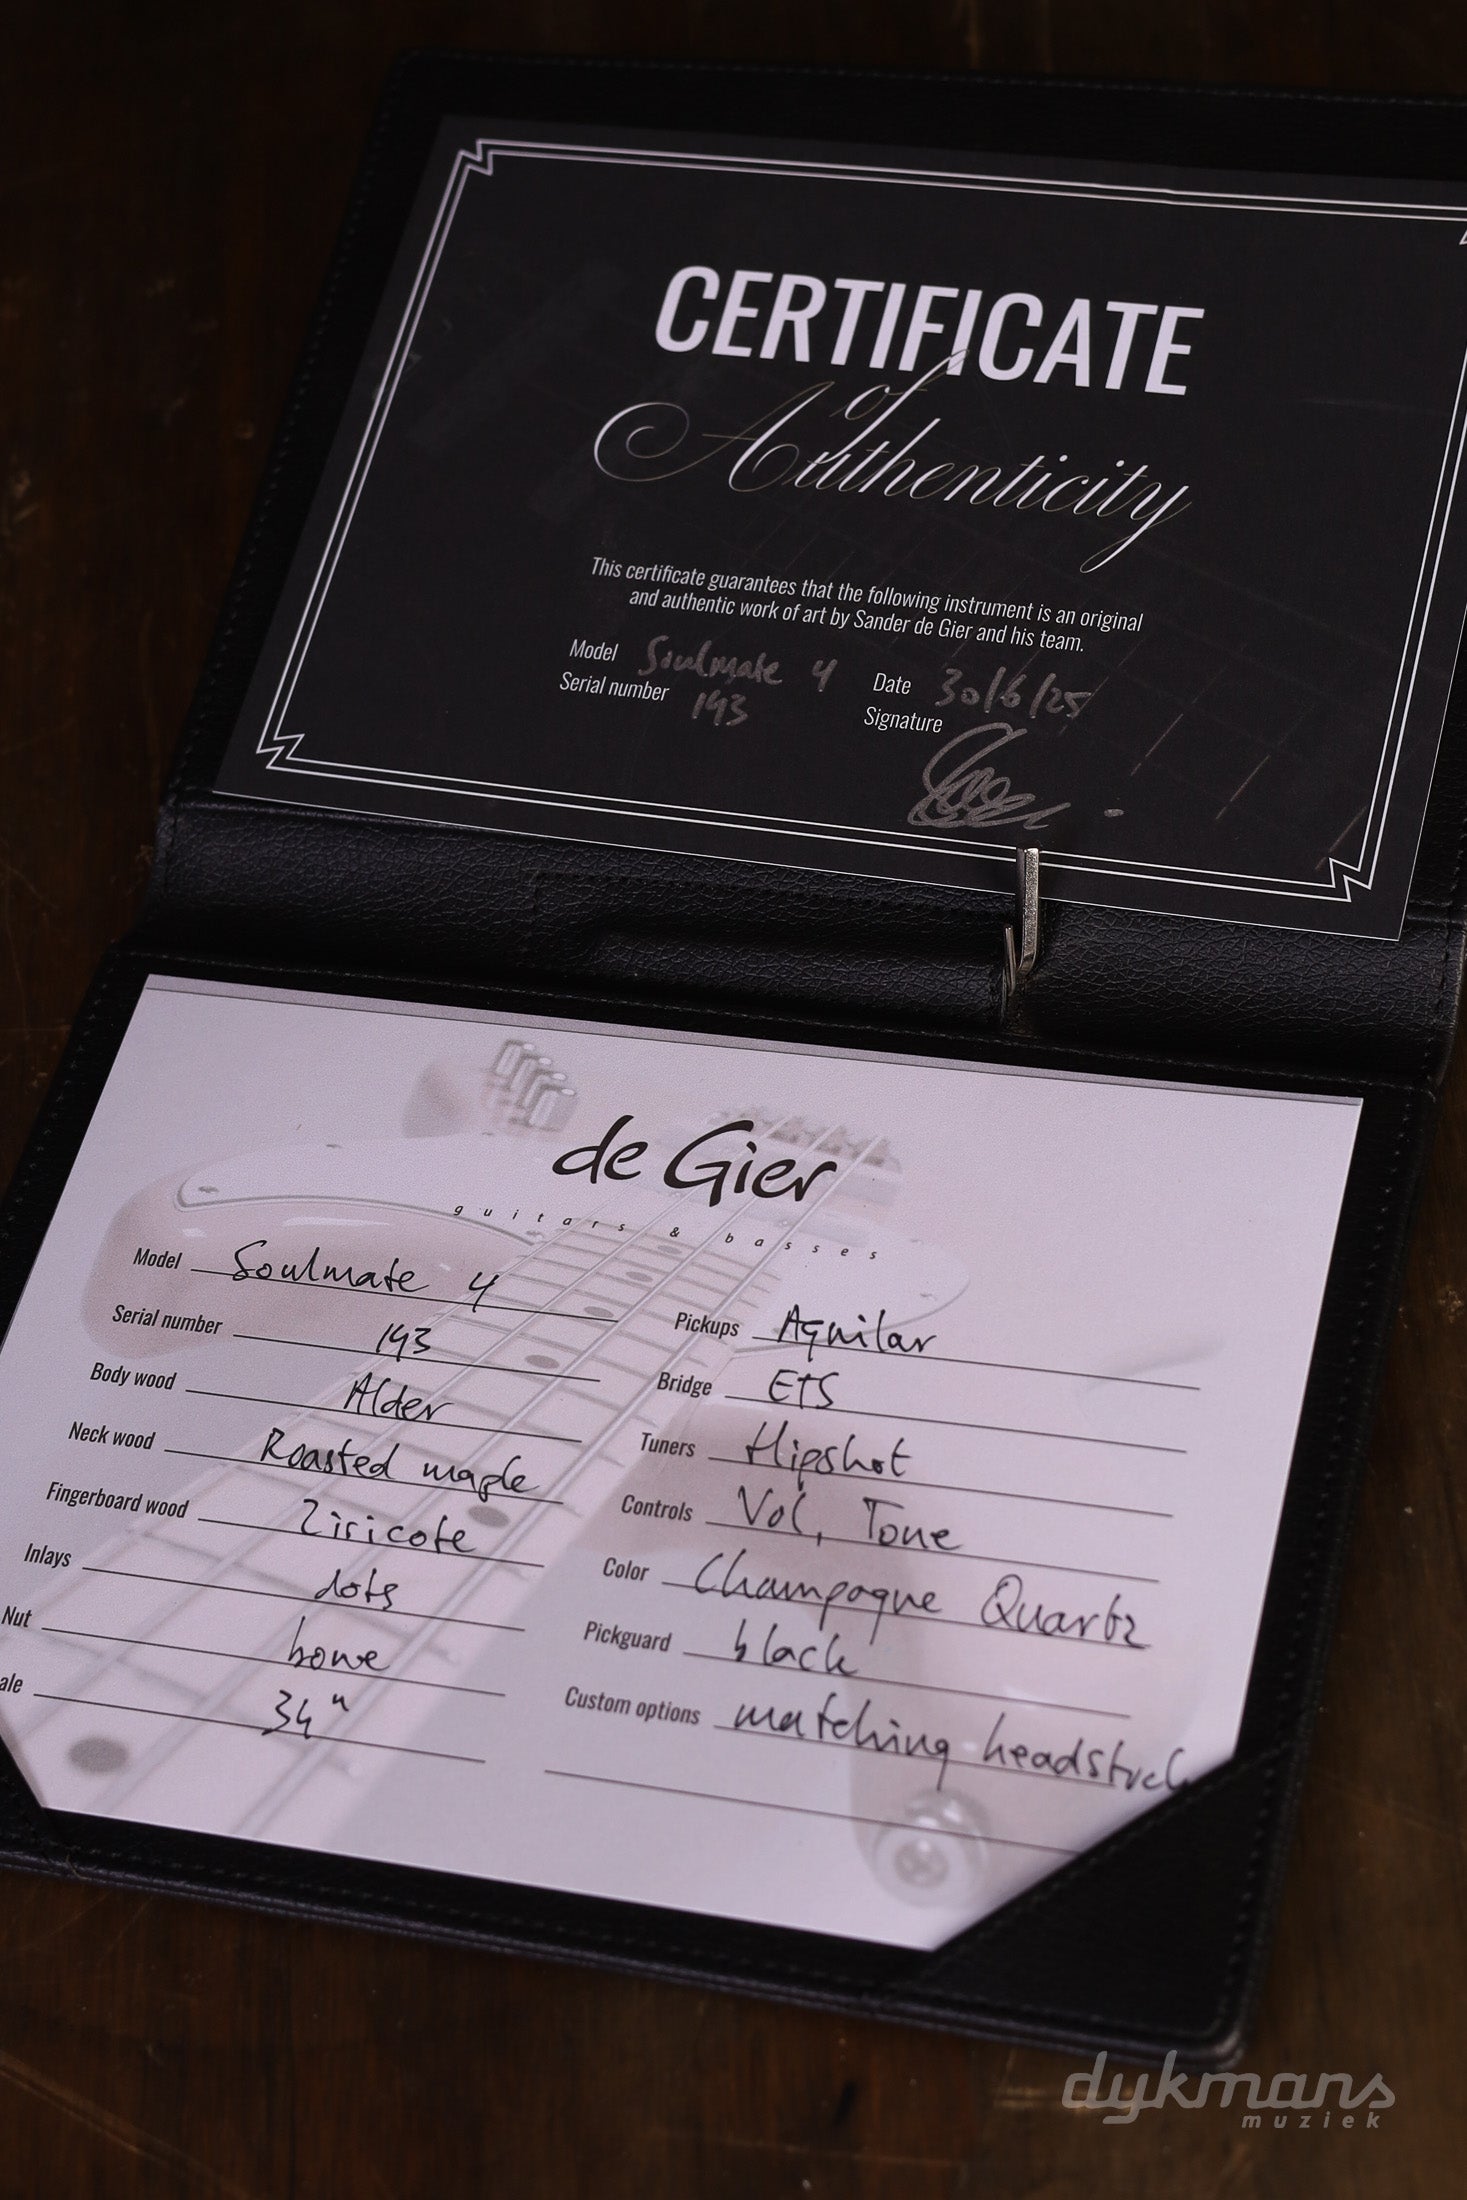 CERTIFICATE
of
Authenticity
This certificate guarantees that the following instrument is an original
and authentic work of art by Sander de Gier and his team.
Model Soulmate 4 Date 30/6/25
Serial number 193 Signature
de Gier
guitars & basses
Model Soulmate 4
Serial number 193
Body wood Alder
Neck wood Roasted maple
Fingerboard wood Ziricote
Inlays dots
Nut bone
ale 34"
Pickups Aguilar
Bridge ETS
Tuners Hipshot
Controls Vol, Tone
Color Champagne Quartz
Pickguard black
Custom options matching headstock
dykmans
muziek